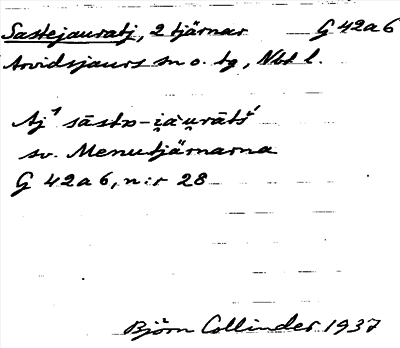 Sastejauratj, 2 tjärnar G 42a6
Arvidsjaurs sn o. tg, Nbt l.
sv. Menutjärnarna
G 42a6, n:r 28
Björn Collinder 1937